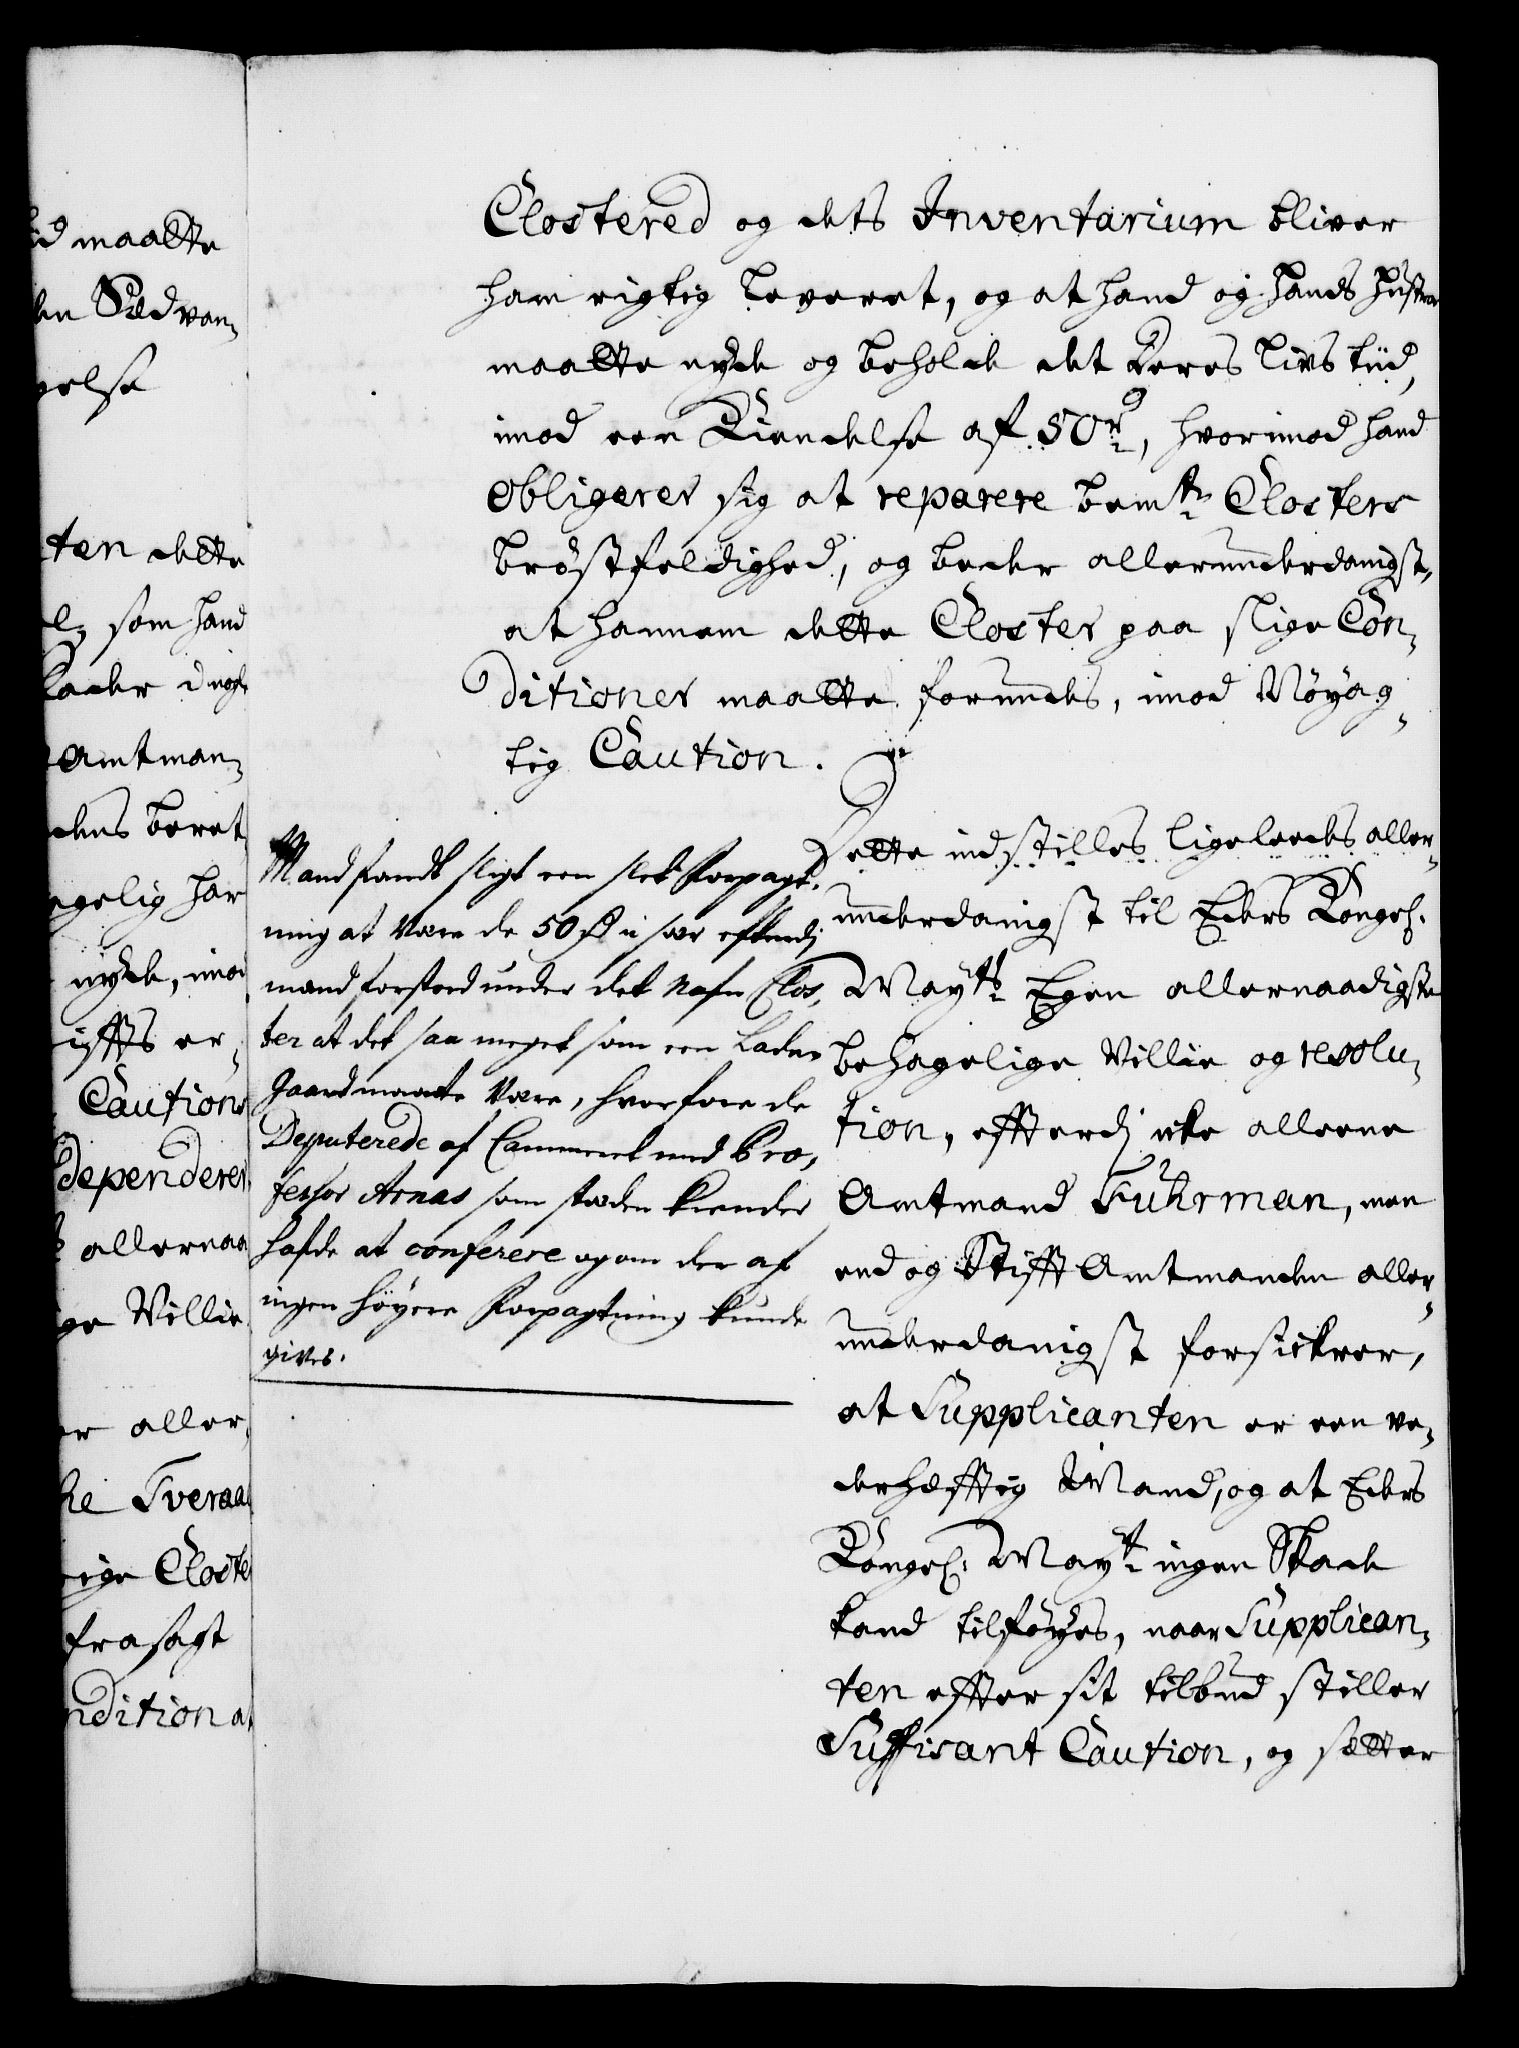 id maatte
en Sædvan„
gelse
ten dette
som hand
Amtman„
dens beret
gelig har
nyde, imod
er„
Caution
dependerer
allernaa
ge Villie
er aller„
Tveraa
ige Closter
frasagt
ndition at
Clostered og dets Inventarium bliver
ham rigtig leveret, og at hand og hands Hustrue
maatte nyde og beholde det deres livs tiid,
imod een Kiendelse af 50 r, hvorimod hand
obligerer sig at reparere bemte Closters
bröstfeldighed, og beder allerunderdanigst,
at hannem dette Closter paa slige Con„
ditioner maatte forundes, imod Nöyag„
tig Caution.
Mand fandt sligt een slet Forpagt„
ning at være de 50 rd i sær efterdj
mand forstod under det Nafn Clos„
ter at det saa meget som een Lade„
Gaard maatte være, hvorfore de
Deputerede af Cammeret med Pro„
fessor Arnas som stæden kiender
hafde at conferere og om der af
ingen höyere Forpagtning kunde
gives.
Dette indstilles ligeleedes aller„
underdanigst til Eders Kongel.
Mayts Egen allernaadigste
behagelige Villie og resolu„
tion, effterdj icke alleene
Amtmand Fuhrman, men
end og Stifft Amtmanden aller„
underdanigst forsickrer,
at Supplicanten er een ve„
derhæfftig Mand, og at Eders
Kongel: Mayt ingen Skade
kand tilföyes, naar Supplican„
ten effter sit tilbud stiller
Suffisant Caution, og sætter